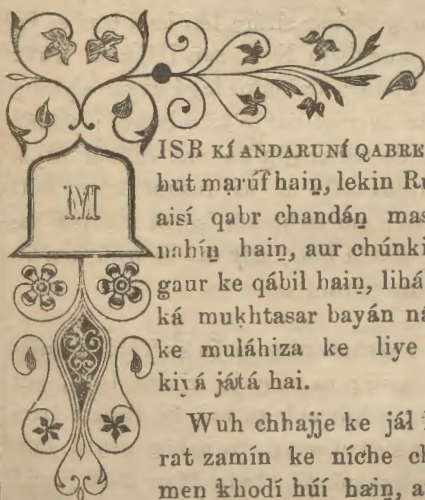 MISR KÍ ANDARUNÍ QABRE
but marúf hain, lekin Ru
aisí qabr chandán mas
nahín hain, aur chúnki
gaur ke qábil hain, lihá
ká mukhtasar bayán ná
ke muláhiza ke liye
kiyá játá hai.
Wuh chhajje ke jál
rat zamín ke níche ch
men khodí húí hain, a